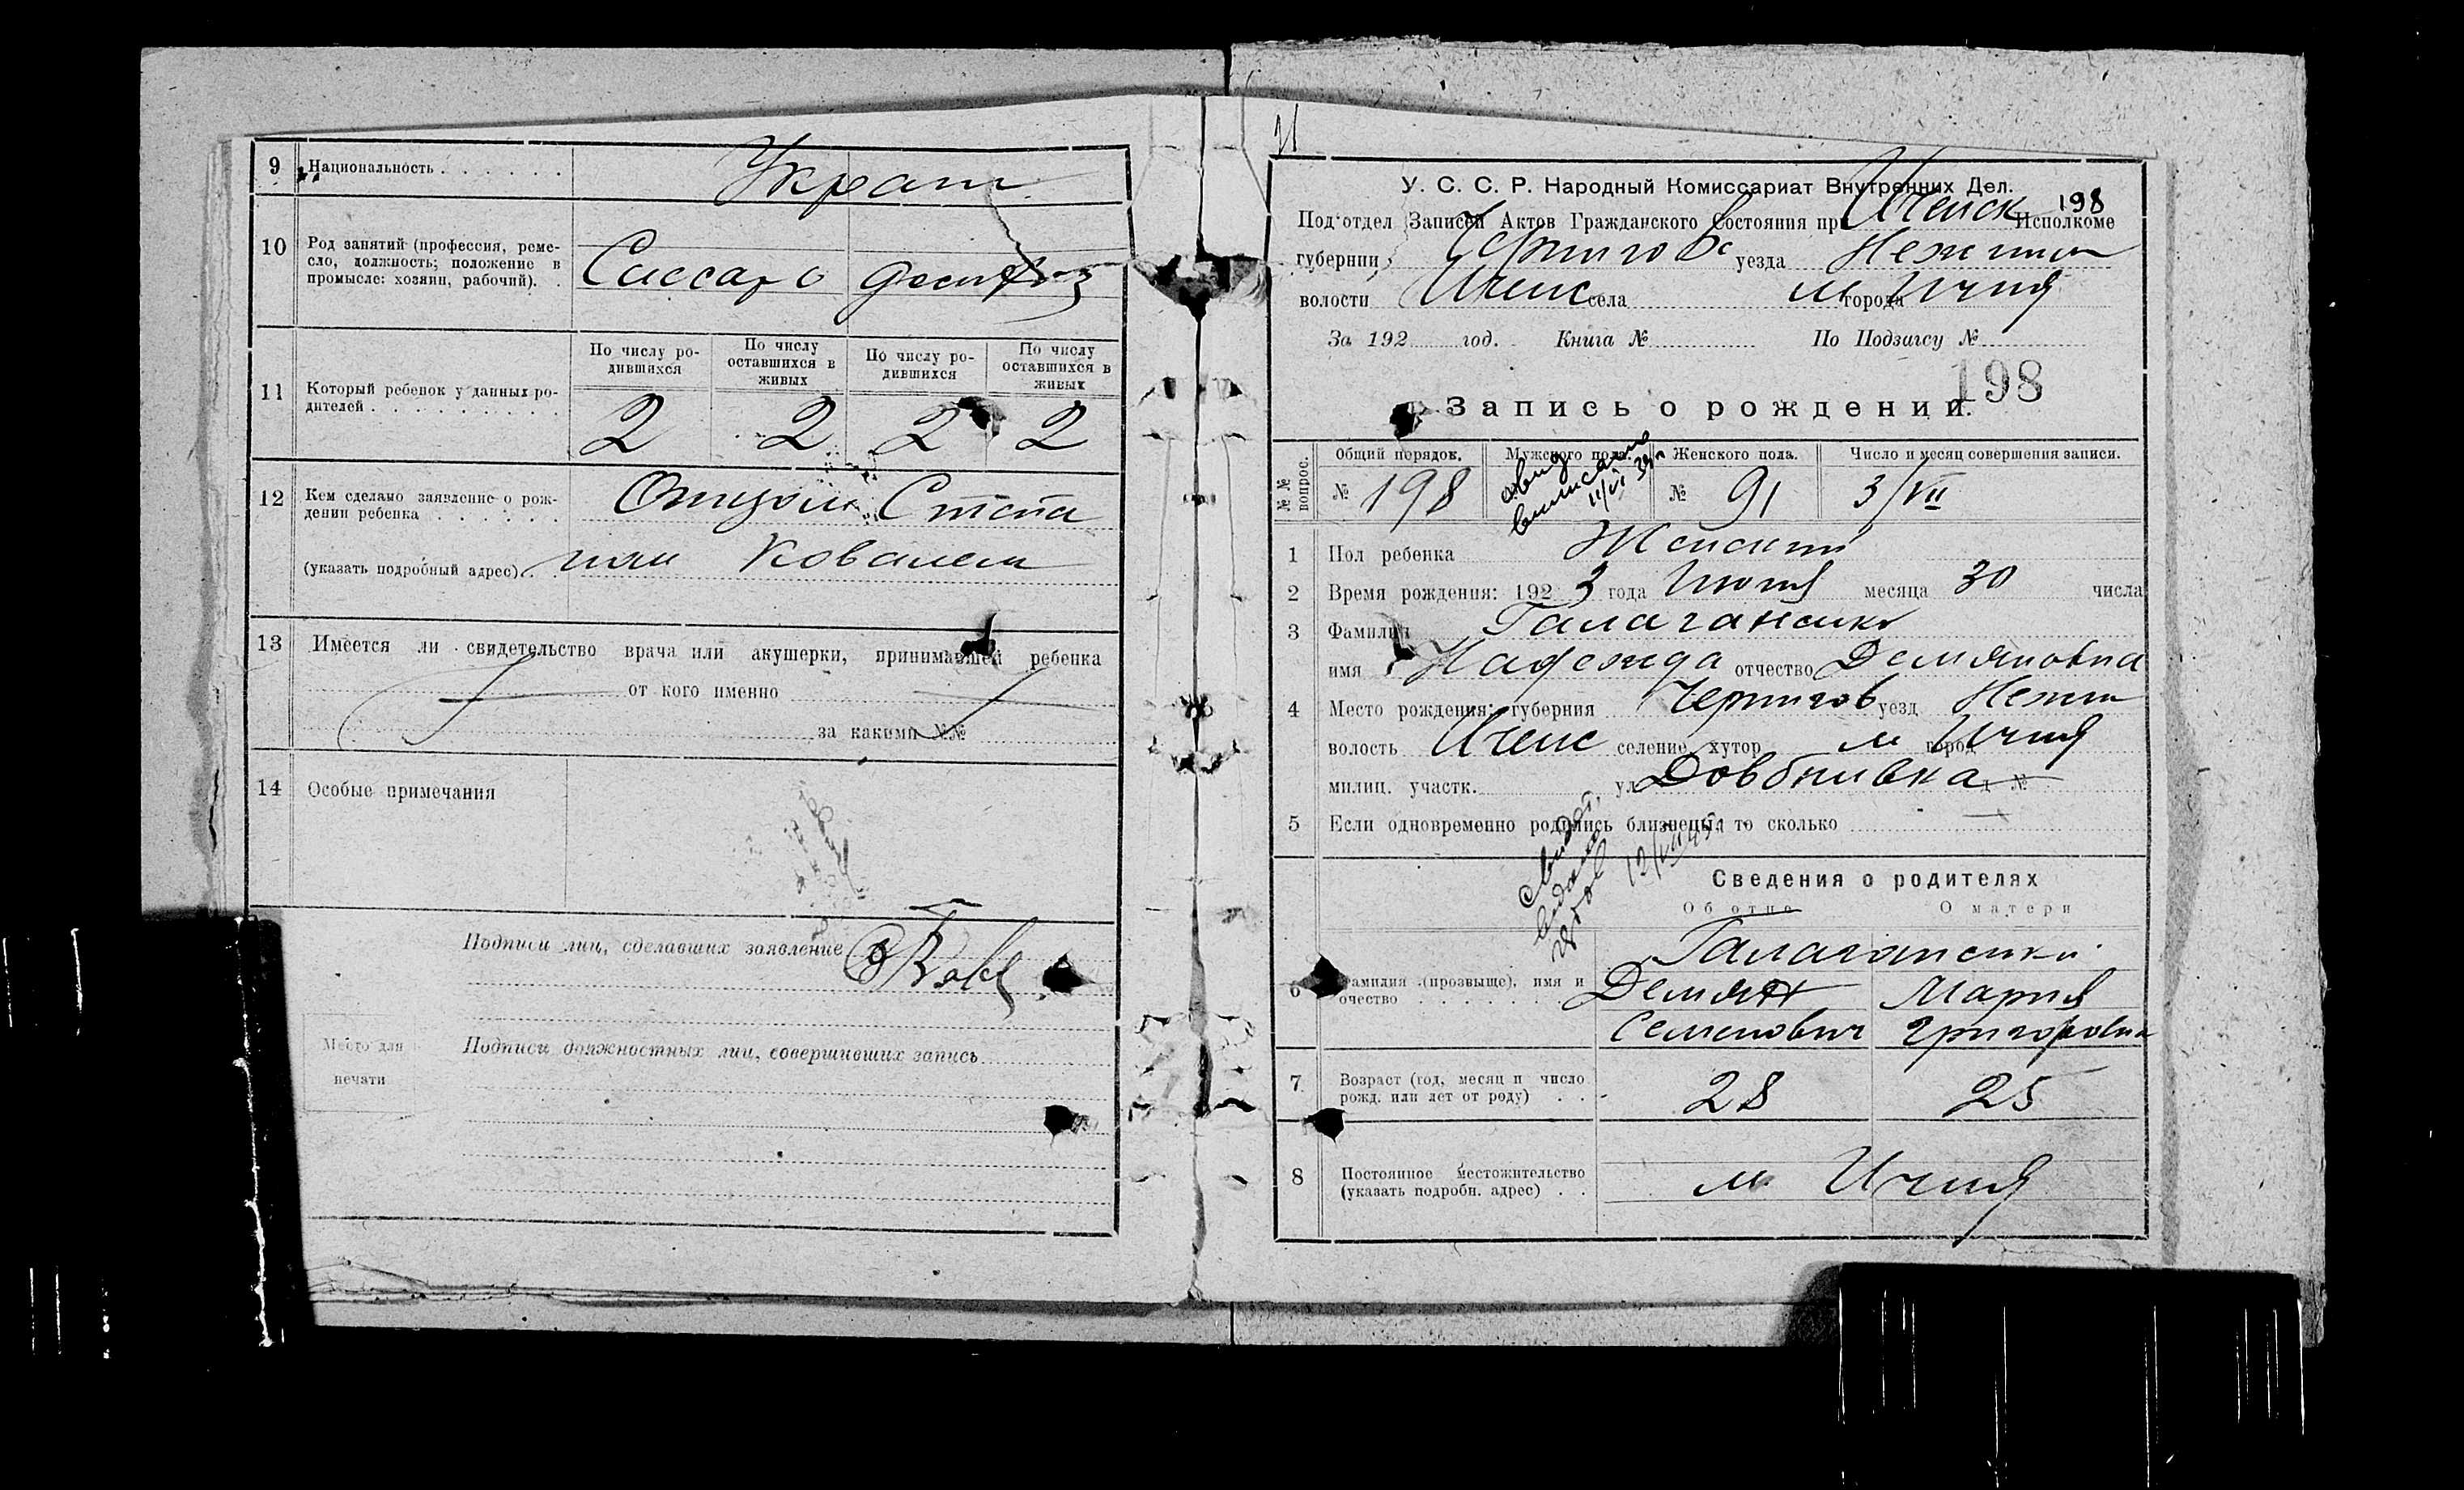 9 Национальность . . . . . . Украин
10 Род занятий (профессия, реме-
сло, должность; положение в
промысле: хозяин, рабочий). .
11 Который ребенок у данных ро-
дителей . . . . . . . . .
По числу ро-
дившихся
По числу
оставшихся в
живых
По числу ро-
дившихся
По числу
оставшихся в
живых
2 2 2 2
12 Кем сделано заявление о рож-
дении ребенка . . . . . . Отцом Степа
(указать подробный адрес). . ном Ковалем
13 Имеется ли свидетельство врача или акушерки, принимавшей ребенка
от кого именно
за какими №№
14 Особые примечания
Подписи лиц, сделавших заявление
Место для
печати
Подписи должностных лиц, совершивших запись
У. С. С. Р. Народный Комиссариат Внутренних Дел.
198
Под'отдел Записей Актов Гражданского Состояния при Иченск Исполкоме
губернии Чернигов уезда Нежин
волости Иченс села м города Ичня
За 192 год. Книга № По Подзагсу №
198
Запись о рождении.
№№ вопрос.
Общий порядок. Мужского пола. Женского пола. Число и месяц совершения записи.
№ 198 № 91 3/VII
1 Пол ребенка Женский
2 Время рождения: 192 3 года Июня месяца 30 числа
3 Фамилия
имя Надежда отчество Демяновна
4 Место рождения: губерния Чернигов уезд Нежин
волость Иченс селение, хутор м город Ичня
милиц. участк. ул Довбнивка д №
5 Если одновременно родились близнецы, то сколько —
Сведения о родителях
Об отце О матери
6 Фамилия (прозвыще), имя и
очество . . . . . . .
Демян Мария
Семенович Григоровна
7 Возраст (год, месяц и число
рожд. или лет от роду) . . 28 25
8 Постоянное местожительство
(указать подробн. адрес) . . м Ичня